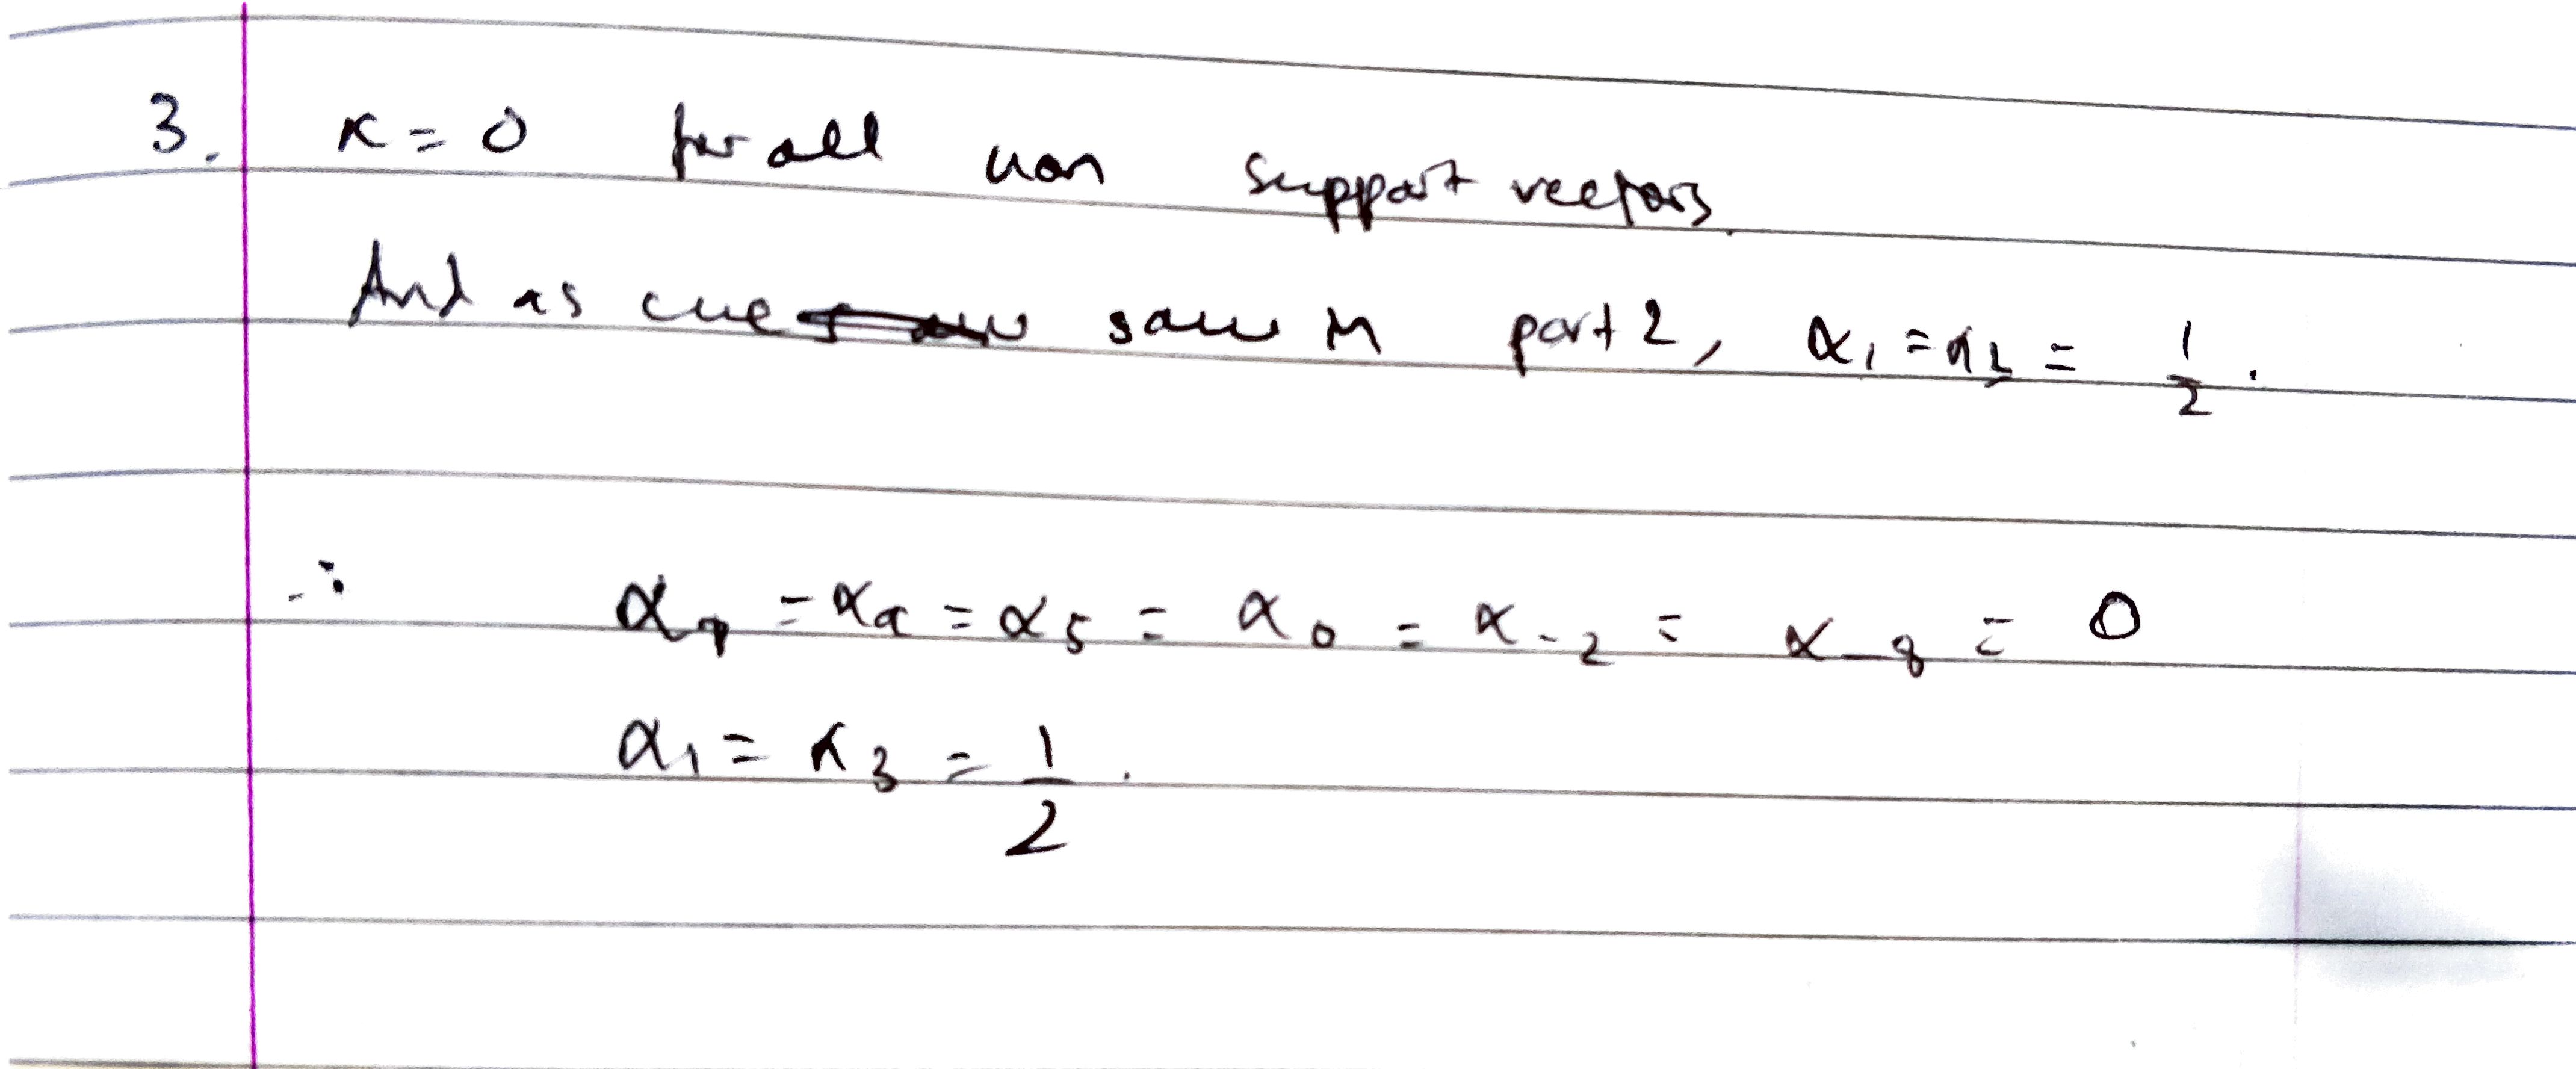 3. α = 0 for all non support vectors.
And as we saw in part 2, α₁ = α₂ = 1/2.
∴ α₉ = α₉ = α₅ = α₀ = α₋₂ = α₋₈ = 0
α₁ = α₃ = 1/2.